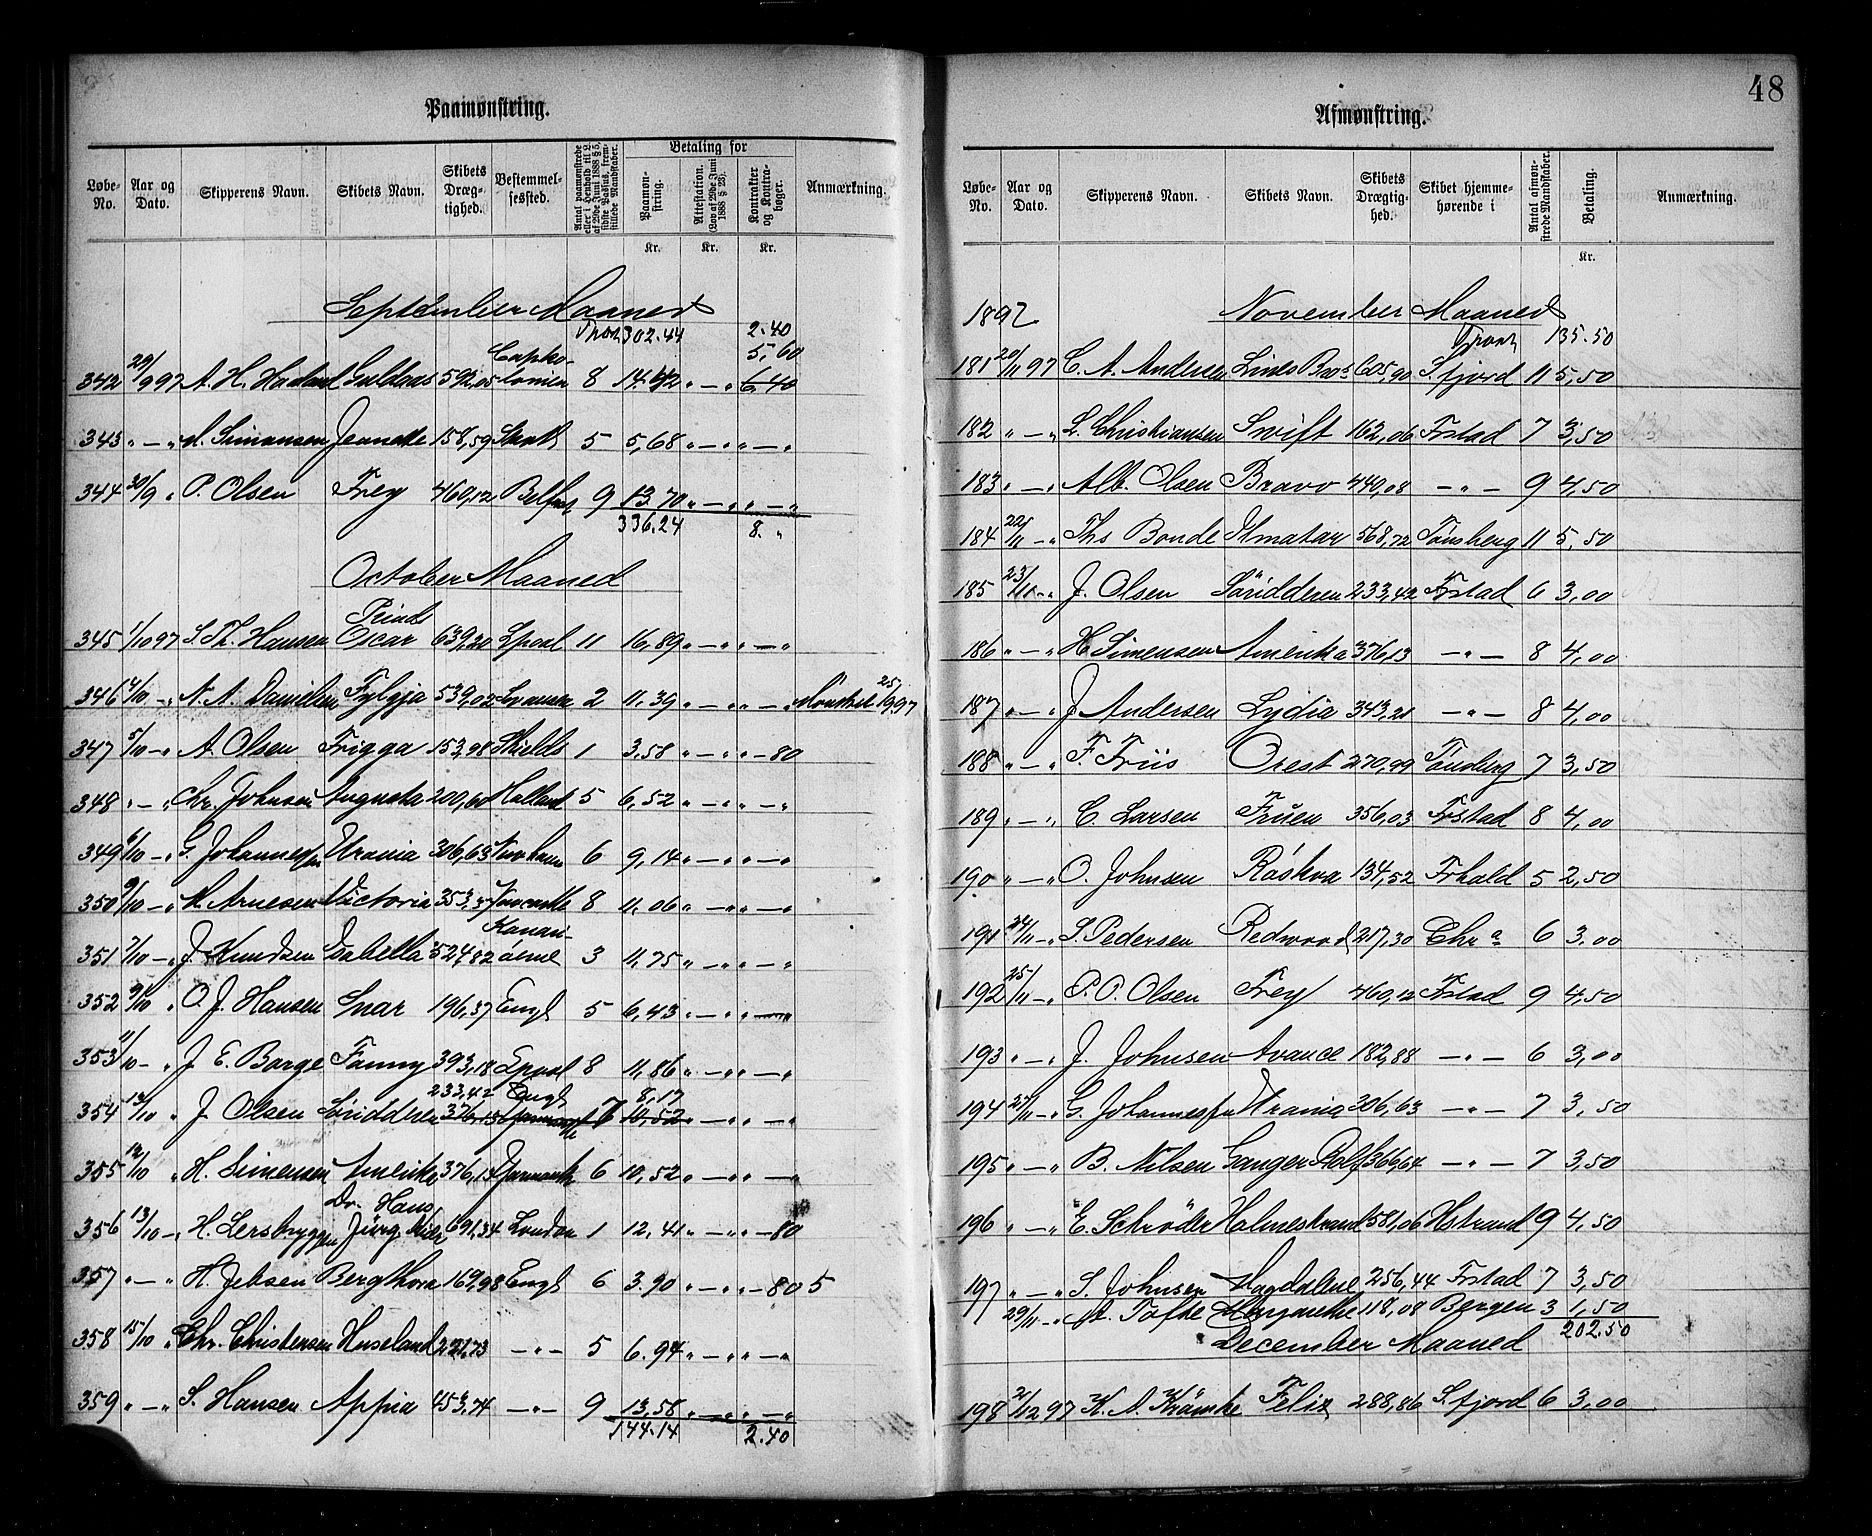 Paamønstring.
Løbe-No. Aar og Dato. Skipperens Navn. Skibets Navn. Skibets Dræg-tighed. Bestemmel-sessted. Antal paamønstrede eller i Henhold til L. af 29de Juni 1888 § 5, sidste Passus, frem-stillede Mandskaber. Betaling for Paamøn-string. Attestation. (Lov af 29de Juni 1888 § 23). Kontrakter og Kontra-bøger. Anmærkning.
Kr. Kr. Kr.
September Maaned
Trans 302.44 2.40
342 29/9 97 A. H. Haaland 592,05 Capko-lonien 8 14.42 " — " 5,60 6.40
343 " — " A. Simonsen Jeanette 158,59 5 5,68 " — " " — "
344 30/9 " P. Olsen Frey 460,12 Belfast 9 13.70 " — " " — "
336.24 8. "
October Maaned
345 1/10 97 S. Th. Hansen Prinds Oscar 639,20 Lpool 11 16,89 " — " " — "
346 4/10 — " N. A. Danielsen Fylgja 539,02 Swansea 2 11,39 " — " " — " 25/9 97
347 5/10 — " A. Olsen Frigga 153,98 Shields 1 3.58 " — " — 80
348 " — " Chr. Johnsen Augusta 200,60 Holland 5 6,52 " — " " — "
349 6/10 — " G. Johannessen Urania 306,63 6 9,14 " — " " — "
350 9/10 — " M. Arnesen Victoria 353,57 Newcastle 8 11,06 " — " " — "
351 7/10 — " J. Knudsen Isabella 524,82 Kanari-øerne 3 11,75 " — " " — "
352 9/10 " O. J. Hansen Snar 196,37 Engl 5 6,43 " — " " — "
353 11/10 — " J. E. Borge Fanny 393,18 Lpool 8 11,86 " — " " — "
354 12/10 " J. Olsen Sönidderen 233,42 376,13 Engl 7 8,17 10,52 " — " " — "
355 12/10 " H. Simensen Amerika 376,13 Yarmouth 6 10,52 " — " " — "
356 13/10 — " H. Lersbryggen Dr. Hans Jürg. 691,34 London 1 12,41 " — " — 80
357 " — " H. Jebsen Bergthora 169,98 Engl 6 3.90 " — " — 80 5
358 15/10 " Chr. Christensen Huseland 221,73 — " — 5 6.94 " — " " — "
359 " — " S. Hansen Appia 453,74 — " — 9 13,58 " — " " — "
144.14 2.40
48
Afmønstring.
Løbe-No. Aar og Dato. Skipperens Navn. Skibets Navn. Skibets Drægtig-hed. Skibet hjemme-hørende i Antal afmøn-strede Mandskaber. Betaling. Anmærkning.
Kr.
1897 November Maaned
Trans 135.50
181 20/11 97 C. A. Andersen Lines Bros 605,90 S.fjord 11 5,50
182 " — " L. Christiansen Swift 162,06 Frstad 7 3,50
183 " — " Alb. Olsen Bravo 440,08 — " — 9 4,50
184 22/11 — " Ths Bonde Ilmatar 568,72 Tönsberg 11 5,50
185 23/11 — " J. Olsen Sönidderen 233,42 Frstad 6 3,00
186 " — " H. Simensen Amerika 376,13 — " — 8 4,00
187 " — " J. Andersen Lydia 343,21 — " — 8 4,00
188 " — " F. Friis Orest 270,99 Tönsberg 7 3,50
189 " — " C. Larsen Fruen 356,03 Frstad 8 4,00
190 " — " O. Johnsen Röskva 134,52 Frhald 5 2,50
191 24/11 — " S. Pedersen Redwood 217,30 Chr a 6 3,00
192 25/11 — " P. P. Olsen Frey 460,12 Frstad 9 4,50
193 " — " J. Johnsen Avance 182,88 — " — 6 3,00
194 27/11 — " G. Johannessen Urania 306,63 — " — 7 3,50
195 " — " B. Nilsen Ganger Rolf 366,64 — " — 7 3,50
196 " — " E. Schröder Holmestrand 581,06 Hstrand 9 4,50
197 " — " S. Johnsen Magdalene 256,44 Frstad 7 3,50
29/11 — " M. Tofte Margarethe 118,08 Bergen 3 1,50
202.50
December Maaned
198 2/12 97 K. A. Felix 288,86 S.fjord 6 3,00